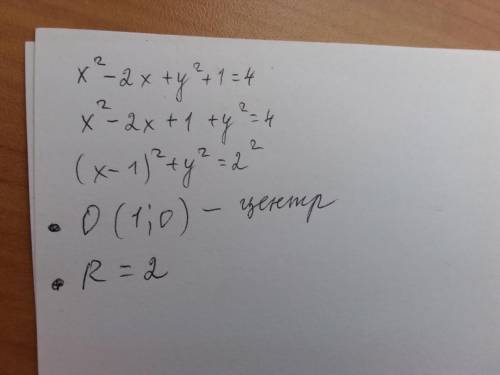 x² - 2x + y² + 1 = 4
x² - 2x + 1 + y² = 4
(x - 1)² + y² = 2²
• O (1; 0) - центр
• R = 2